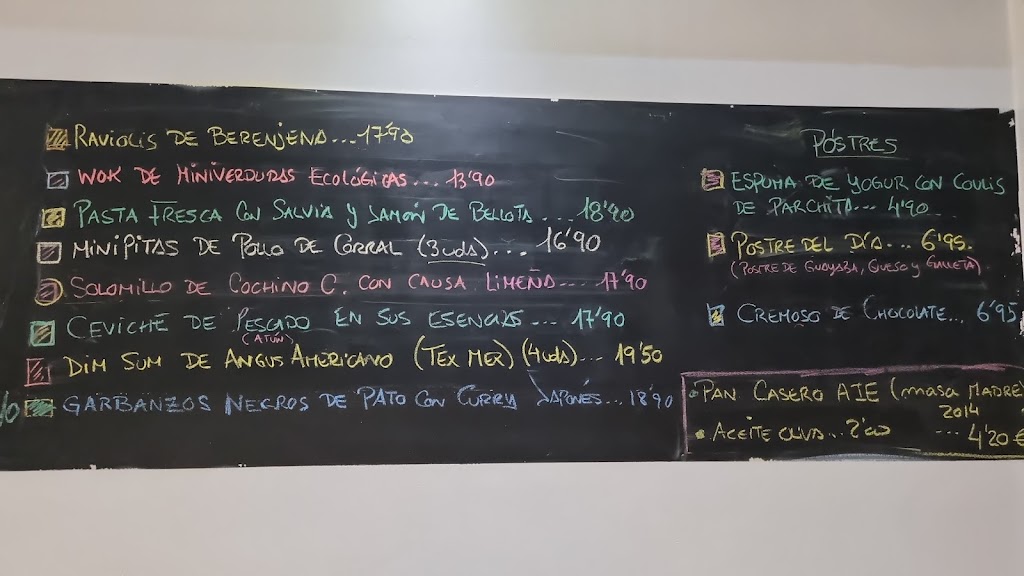 RAVIOLIS DE BERENJENA...17'90
WOK DE MINIVERDURAS ECOLÓGICAS... 13'90
PASTA FRESCA CON SALVIA Y JAMÓN DE BELLOTA .... 18'90
MINIPITAS DE POLLO DE CORRAL (3 uds)... 16'90
SOLOMILLO DE COCHINO C. CON CAUSA LIMEÑA.... 17'90
CEVICHE DE PESCADO EN SUS ESENCIAS ... 17'90
(ATÚN)
DIM SUM DE ANGUS AMERICANO (TEX MEX) (4 uds)... 19'50
GARBANZOS NEGROS DE PATO CON CURRY JAPONÉS... 18'90
PÓSTRES
ESPUMA DE YOGUR CON COULIS
DE PARCHITA... 4'90
POSTRE DEL DÍA... 6'95.
(POSTRE DE GUAYABA, QUESO Y GALLETA).
CREMOSO DE CHOCOLATE... 6'95
PAN CASERO AIE (MASA MADRE)
2014
ACEITE OLIVA... 2'00 ... 4'20 €